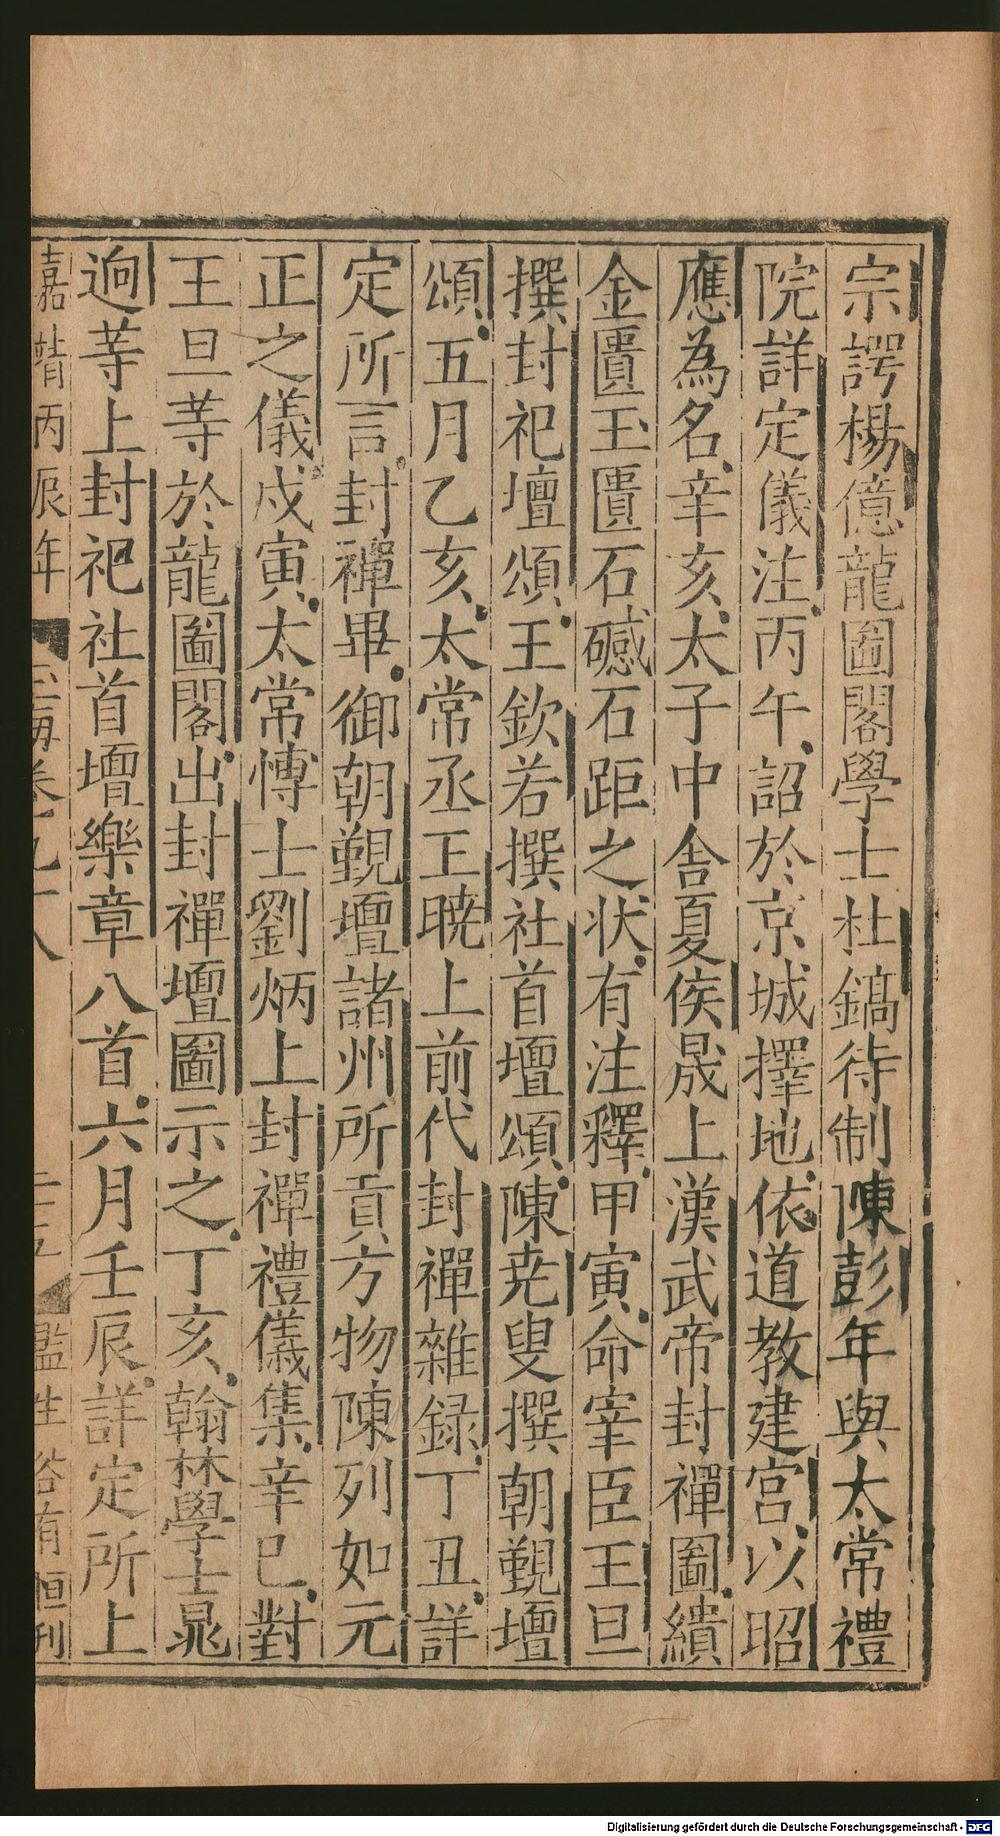 宗諤楊億龍圖閣學士杜鎬待制陳彭年與太常禮
院詳定儀注丙午詔於京城擇地依道教建宮以昭
應為名辛亥太子中舍夏侯晟上漢武帝封禪圖繢
金匱玉匱石䃭石距之狀有注釋甲寅命宰臣王旦
撰封祀壇頌王欽若撰社首壇頌陳堯叟撰朝覲壇
頌五月乙亥太常丞王曉上前代封禪雜録丁丑詳
定所言封禪畢御朝覲壇諸州所貢方物陳列如元
正之儀戊寅太常博士劉炳上封禪禮儀集辛巳對
王旦等於龍圖閣出封禪壇圖示之丁亥翰林學士晁
迥等上封祀社首壇樂章八首六月壬辰詳定所上
嘉靖丙辰年 玉海卷九十八 二十五 監生 有恒刊
Digitalisierung gefördert durch die Deutsche Forschungsgemeinschaft - DFG